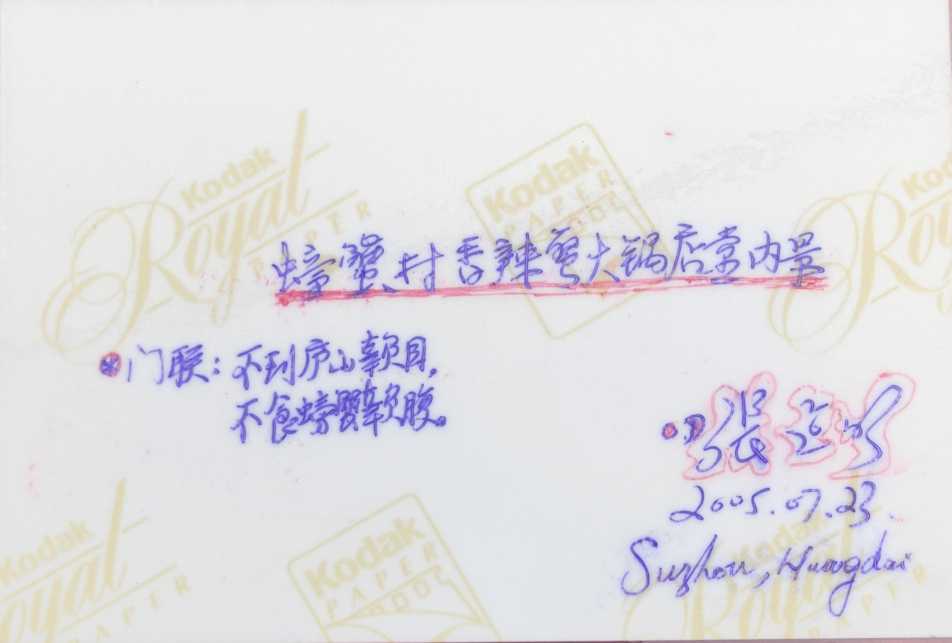 Kodak
Royal
PAPER
Kodak
PAPER
Kodak
螃蟹村香辣蟹火锅店堂内景
门联：不到庐山辜负目，
不食螃蟹辜负腹。
张
2005.07.23.
Suzhou, Huangdai
Kodak
Royal
PAPER
Kodak
PAPER
Kodak
Royal
PAPER